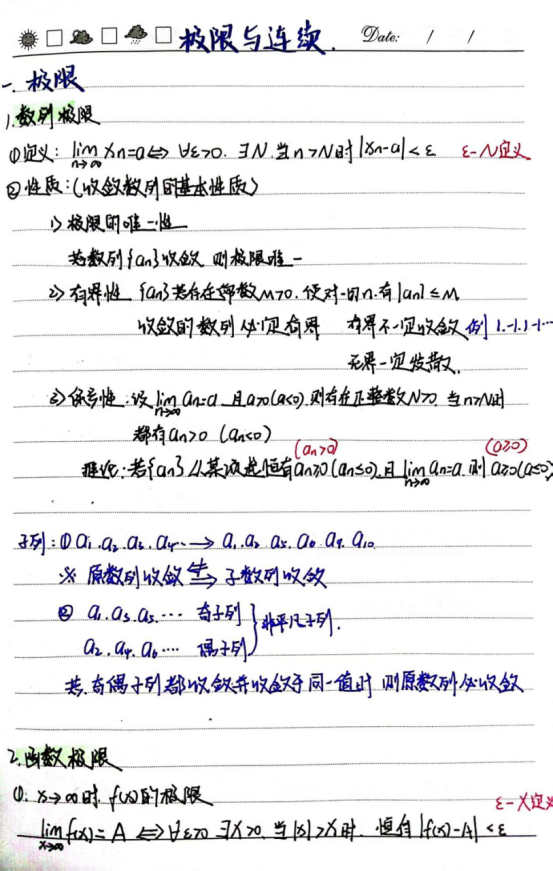 极限与连续. Date: / /
一、极限
1.数列极限
①定义: lim n→∞ xn=a⇔ ∀ε>0. ∃N.当n>N时|xn-a|<ε ε-N定义
②性质:(收敛数列的基本性质)
1>极限的唯一性
若数列{an}收敛 则极限唯一
2>有界性 {an}若存在M>0.使对一切n.有|an|≤M
收敛的数列必定有界 有界不一定收敛 例 1.-1.1-1…
无界一定发散.
3>保号性:设lim n→∞ an=a 且a>0(a<0).则存在正整数N>0.当n>N时
都有an>0 (an<0)
(an>0) (a≥0)
推论:若{an}从某项起恒有an≥0(an≤0).且lim n→∞ an=a.则a≥0(a≤0)
子列:①a1.a2.a3.a4…→ a1.a2 a5.a6 a9.a10
※ 原数列收敛⇒子数列收敛
② a1.a3.a5.… 奇子列
a2.a4.a6… 偶子列 } 非平凡子列.
若.奇偶子列都收敛并收敛于同一值时 则原数列必收敛
2.函数极限
①. x→∞时.f(x)的极限
ε-X定义
lim x→∞ f(x)=A ⇔∀ε>0 ∃X>0.当|x|>X时.恒有|f(x)-A|<ε